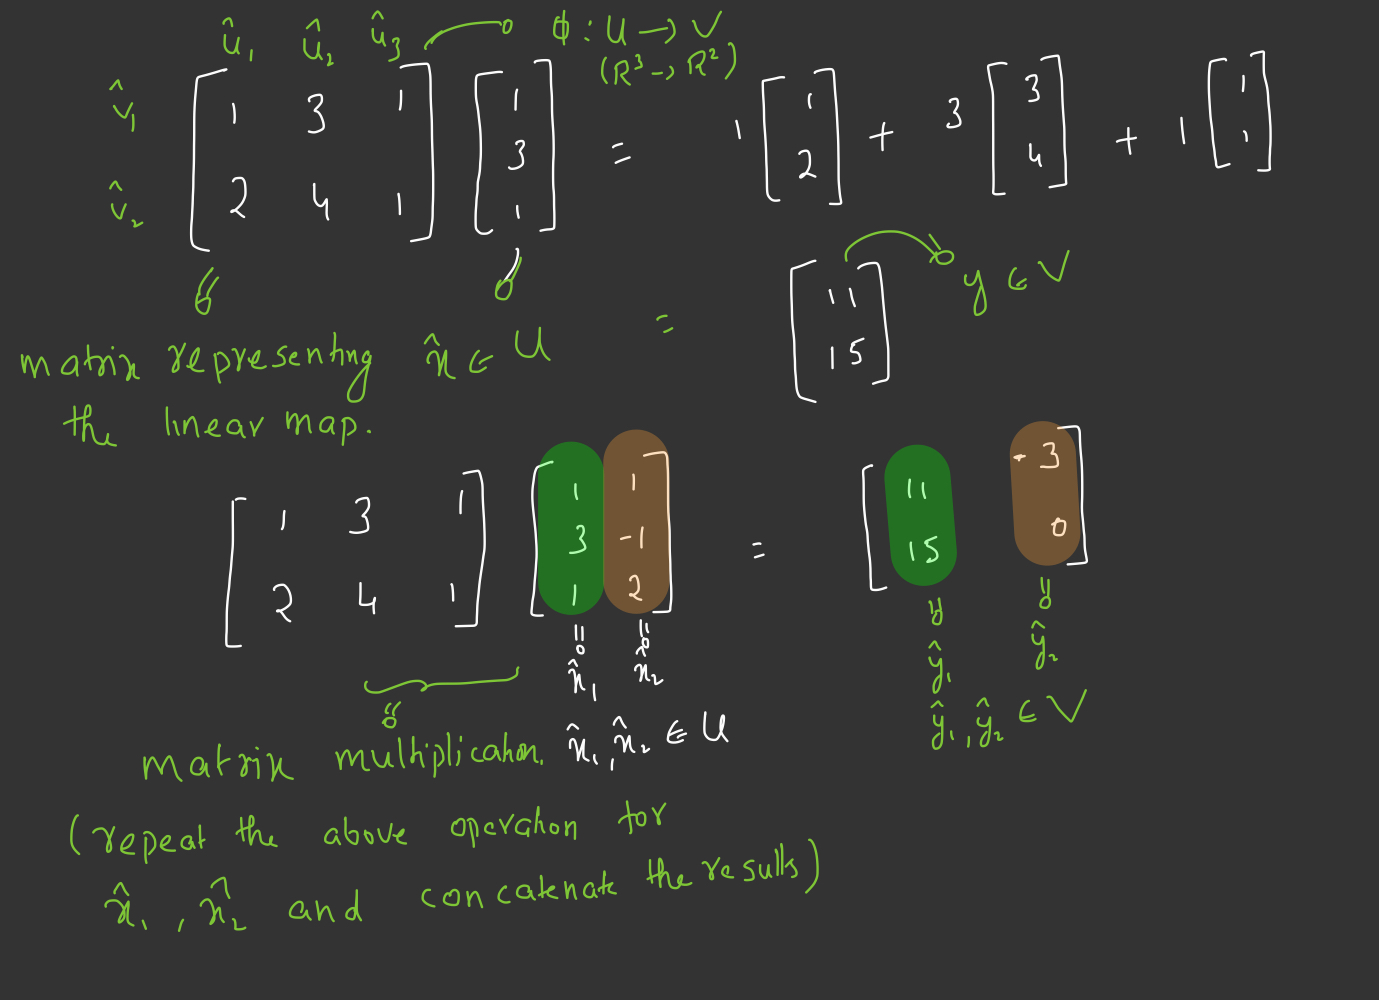 û₁ û₂ û₃ ϕ : U → V
(R³ → R²)
v̂₁ [ 1 3 1 ] [ 1 ] = 1 [ 1 ] + 3 [ 3 ] + 1 [ 1 ]
[ 3 ]
v̂₂ [ 2 4 1 ] [ 1 ] [ 2 ] [ 4 ] [ 1 ]
= [ 11 ] y ∈ V
[ 15 ]
matrix representing x̂ ∈ U
the linear map.
[ 1 3 1 ] [ 1 1 ] = [ 11 -3 ]
[ 3 -1 ]
[ 2 4 1 ] [ 1 2 ] [ 15 0 ]
x̂₁ x̂₂ ŷ₁ ŷ₂
matrix multiplication. x̂₁, x̂₂ ∈ U ŷ₁, ŷ₂ ∈ V
(repeat the above operation for
x̂₁, x̂₂ and concatenate the results)